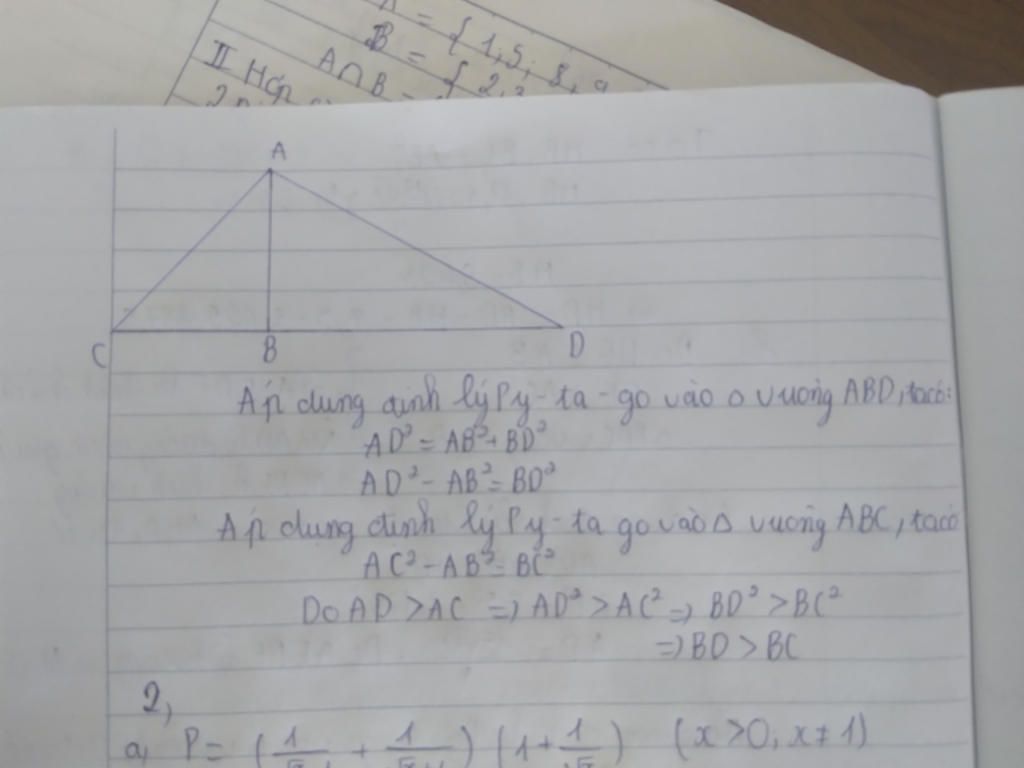 B = { 1, 5, 8, 9
A∩B = { 2, 3
II Hợp
A
C B D
Áp dụng định lý Py-ta-go vào Δ vuông ABD, ta có:
AD² = AB² + BD²
AD² - AB² = BD²
Áp dụng định lý Py-ta go vào Δ vuông ABC, ta có
AC² - AB² = BC²
Do AD > AC => AD² > AC² => BD² > BC²
=> BD > BC
2,
a, P = ( 1 + 1 ) (1 + 1/√x) (x > 0, x ≠ 1)